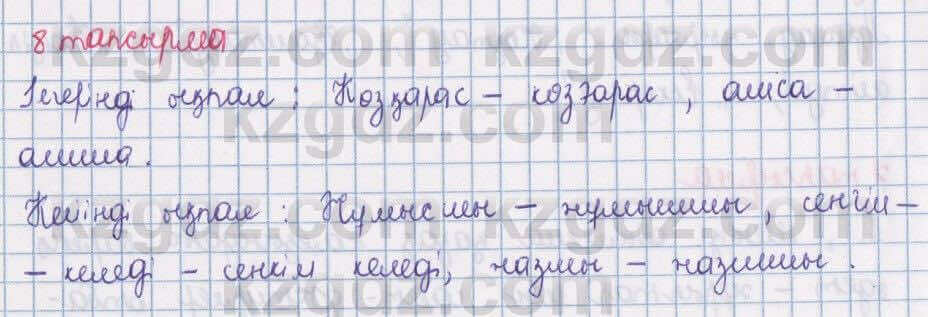 8 тапсырма
Ілгерінді ықпал: Көзқарас - көзғарас, алмса -
алмша.
Кейінді ықпал: Жұмысшы - жұмышшы, сен кім -
- келеді - сенкім келеді, жазшы - жазышшы.
kzgdz.com
kzgdz.com
kzgdz.com
kzgdz.com